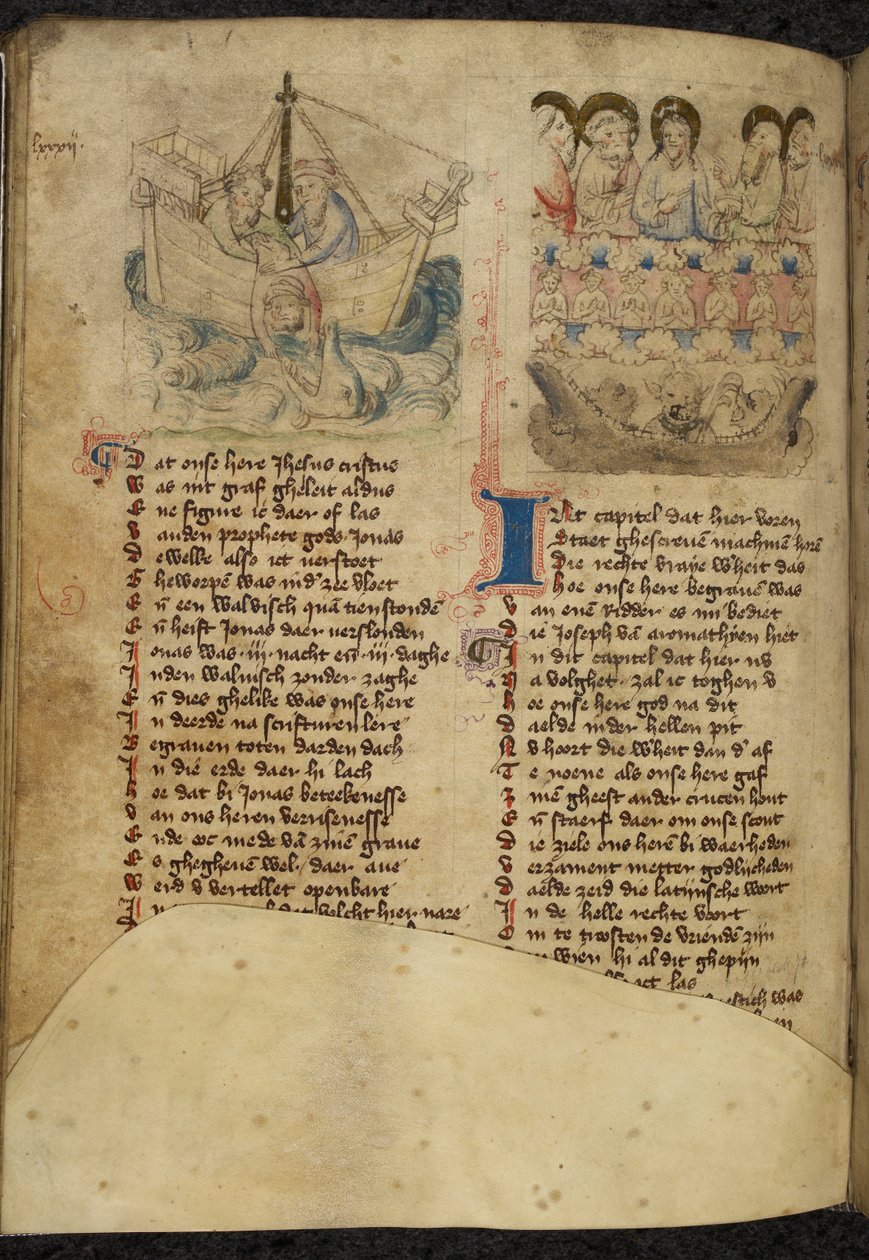 lxxxij.
Dat onse here Jhesus cristus
Was int graf gheleit aldus
Ene figure ic daer of las
Vanden prophete gods Jonas
Dewelke also ict verstoet
Gheworpē was ind' zee vloet
Eñ een walvisch quā tien stondē
Eñ heift Jonas daer verslonden
Jonas was .iij. nacht eñ .iij. daghe
Jnden walvisch zonder zaghe
Eñ dies ghelike was onse here
Jn deerde na scrifturen lere
Begraven toten darden dach
Jn die erde daer hi lach
Hoe dat bi Jonas beteekenesse
Van ons heren verrisenesse
Ende oec mede vā zinē grave
Es ghegheuē wel daer ave
Werd v vertellet openbare
volcht hier nare
JN tcapitel dat hier voren
Staet ghescreuē machmē horē
Die rechte vraye w'heit das
Hoe onse here begrauē was
Van enē Ridder es mi bediet
Die Joseph vā aromathyen hiet
Jn dit capitel dat hier nv
Na volghet zal ic toghen v
Hoe onse here god na dit
Daelde inder hellen pit
Nv hoort die w'heit dan d' af
Te noene als onse here gaf
Zinē gheest ander crucen hout
Eñ staerf daer om onse scout
Die ziele ons herē bi waerheden
Verzament metter godlicheden
Daelde zeid die latijnsche woort
Jn de helle rechte voort
Om te troosten de vriendē zijn
wien hi al dit ghepijn
ict las
was